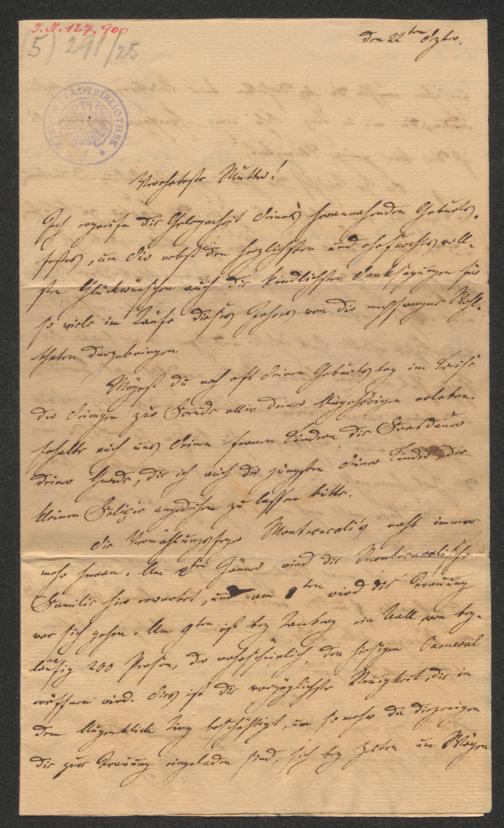 J.N. 127.900
(5) 291/25
STADTBIBLIOTHEK
den 22ten
Verehrteste Mutter!
Ich ergreife die Gelegenheit deines herannahenden Geburts-
festes, um dir nebst den herzlichsten und ehrfurchtsvoll-
sten Glückwünschen auch die kindlichsten Danksagungen für
so viele im Laufe dieses Jahres von dir empfangene Wohl-
thaten darzubringen.
Mögest du noch oft deinen Geburtstag im Kreise
der deinigen zur Freude aller deiner Angehörigen erleben.
erhalte auch uns deinen Kindern die Fortdauer
deiner Gnade, die ich auch der jüngsten deiner Kinder, der
kleinen angedeihen zu lassen bitte.
Die Vermählungsfeyer Montecucoli's naht immer
mehr heran. Am 2ten Jänner wird die Montecucolische
Familie hier erwartet, und am 8ten wird die Trauung
vor sich gehen. Am 9ten ist bey ein Ball von bey-
läufig 200 Person, der wahrscheinlich den hiesigen Carneval
eröffnen wird. Dies ist die vorzüglichste Neuigkeit, die in
dem Augenblicke beschäftigt, um so mehr da diejenigen
die zur Trauung eingeladen sind, sich bey Zeiten um Wägen